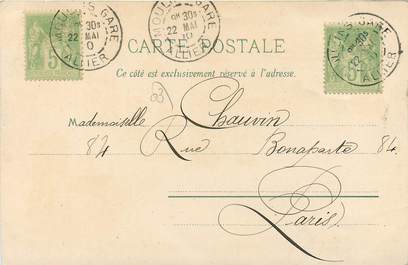 MOULINS GARE
9E 30S
22 MAI
0
ALLIER
MOULINS GARE
9E 30S
22 MAI
0
ALLIER
MOULINS GARE
ALLIER
5
5
CARTE POSTALE
Ce côté est exclusivement réservé à l'adresse.
Mademoiselle Chauvin
84 Rue Bonaparte 84
Paris